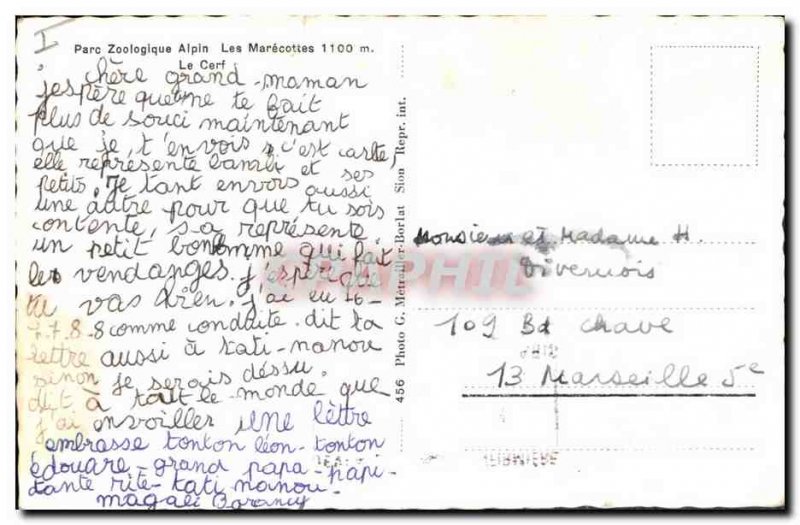 I
Parc Zoologique Alpin Les Marécottes 1100 m.
Le Cerf
chère grand-maman
j'espère que ne te fait
plus de souci maintenant
que je t'envois c'est carte,
elle représente bambi et ses
petits. Je tant envois aussi
une autre pour que tu sois
contente, sa représente
un petit bonhomme qui fait
les vendanges. j'espère que
tu vas bien. j'ai eu 10-
7.7.8-8 comme conduite. dit ta
lettre aussi à kati-nanou
sinon je serais déssu.
dit à tout le monde que
j'ai envoiller une lèttre
embrasse tonton léon-tonton
édouare-grand papa-papi-
tante rite-kati nanou-
magali
456 Photo G. Métrailler-Borlat Sion Repr. int.
Monsieur et Madame H.
Divernois
109 Bd Chave
13 Marseille 5e
CPAPHIL